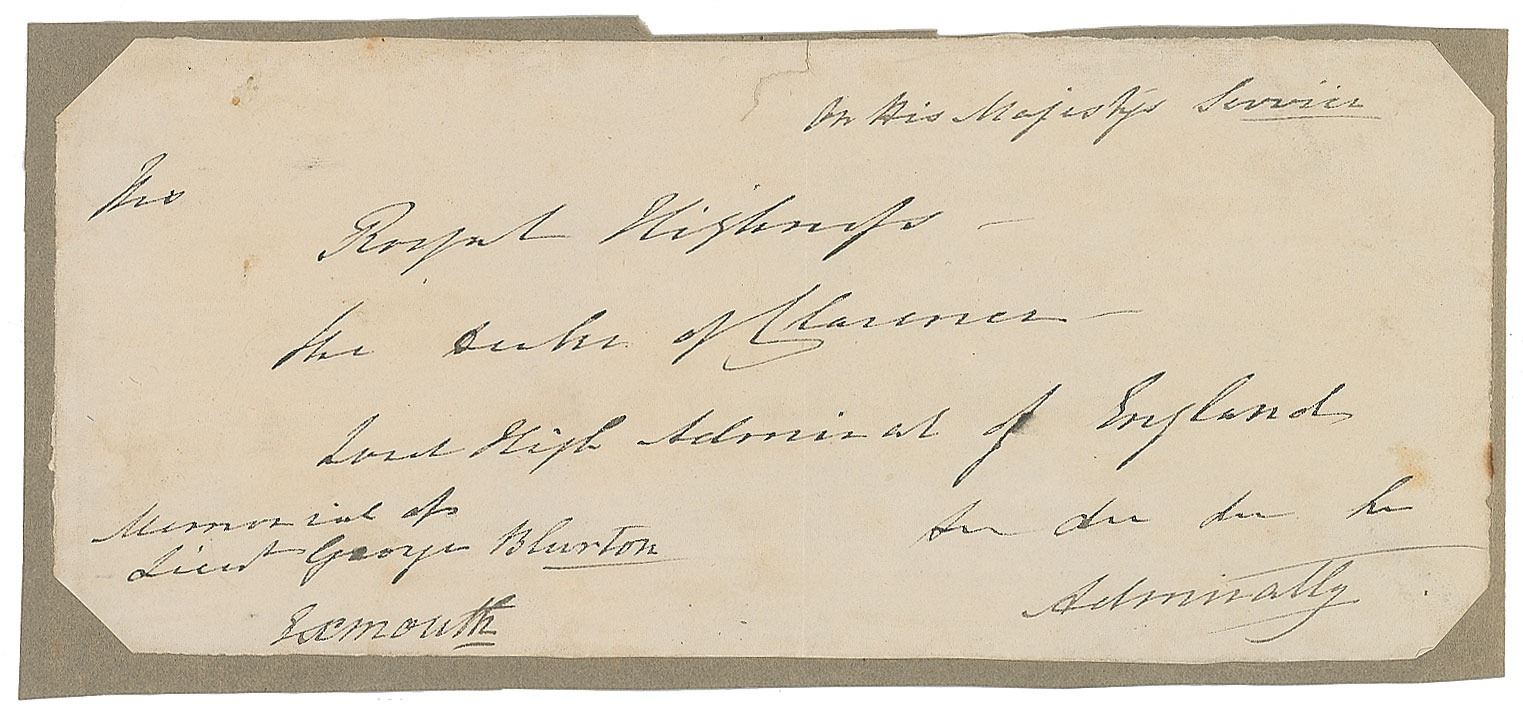 On His Majestys Service
His
Royal Highness -
the Duke of Clarence -
Lord High Admiral of England
Memorial of
Lieut George Blurton
Exmouth
Admiralty